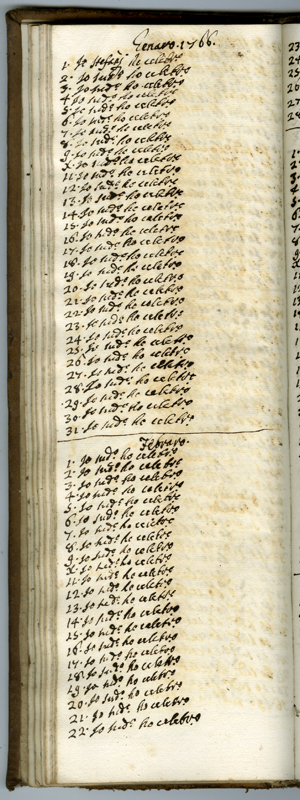 Genaro. 1766.
1. Io Stefani ho celebro
2. Io sud.º ho celebro
3. Io sud.º ho celebro
4. Io sud.º ho celebro
5. Io sud.º ho celebro
6. Io sud.º ho celebro
7. Io sud.º ho celebro
8. Io sud.º ho celebro
9. Io sud.º ho celebro
X. Io sud.º ho celebro
11. Io sud.º ho celebro
12. Io sud.º ho celebro
13. Io sud.º ho celebro
14. Io sud.º ho celebro
15. Io sud.º ho celebro
16. Io sud.º ho celebro
17. Io sud.º ho celebro
18. Io sud.º ho celebro
19. Io sud.º ho celebro
20. Io sud.º ho celebro
21. Io sud.º ho celebro
22. Io sud.º ho celebro
23. Io sud.º ho celebro
24. Io sud.º ho celebro
25. Io sud.º ho celebro
26. Io sud.º ho celebro
27. Io sud.º ho celebro
28. Io sud.º ho celebro
29. Io sud.º ho celebro
30. Io sud.º ho celebro
31. Io sud.º ho celebro
Febraro.
1. Io sud.º ho celebro
2. Io sud.º ho celebro
3. Io sud.º ho celebro
4. Io sud.º ho celebro
5. Io sud.º ho celebro
6. Io sud.º ho celebro
7. Io sud.º ho celebro
8. Io sud.º ho celebro
9. Io sud.º ho celebro
X. Io sud.º ho celebro
11. Io sud.º ho celebro
12. Io sud.º ho celebro
13. Io sud.º ho celebro
14. Io sud.º ho celebro
15. Io sud.º ho celebro
16. Io sud.º ho celebro
17. Io sud.º ho celebro
18. Io sud.º ho celebro
19. Io sud.º ho celebro
20. Io sud.º ho celebro
21. Io sud.º ho celebro
22. Io sud.º ho celebro